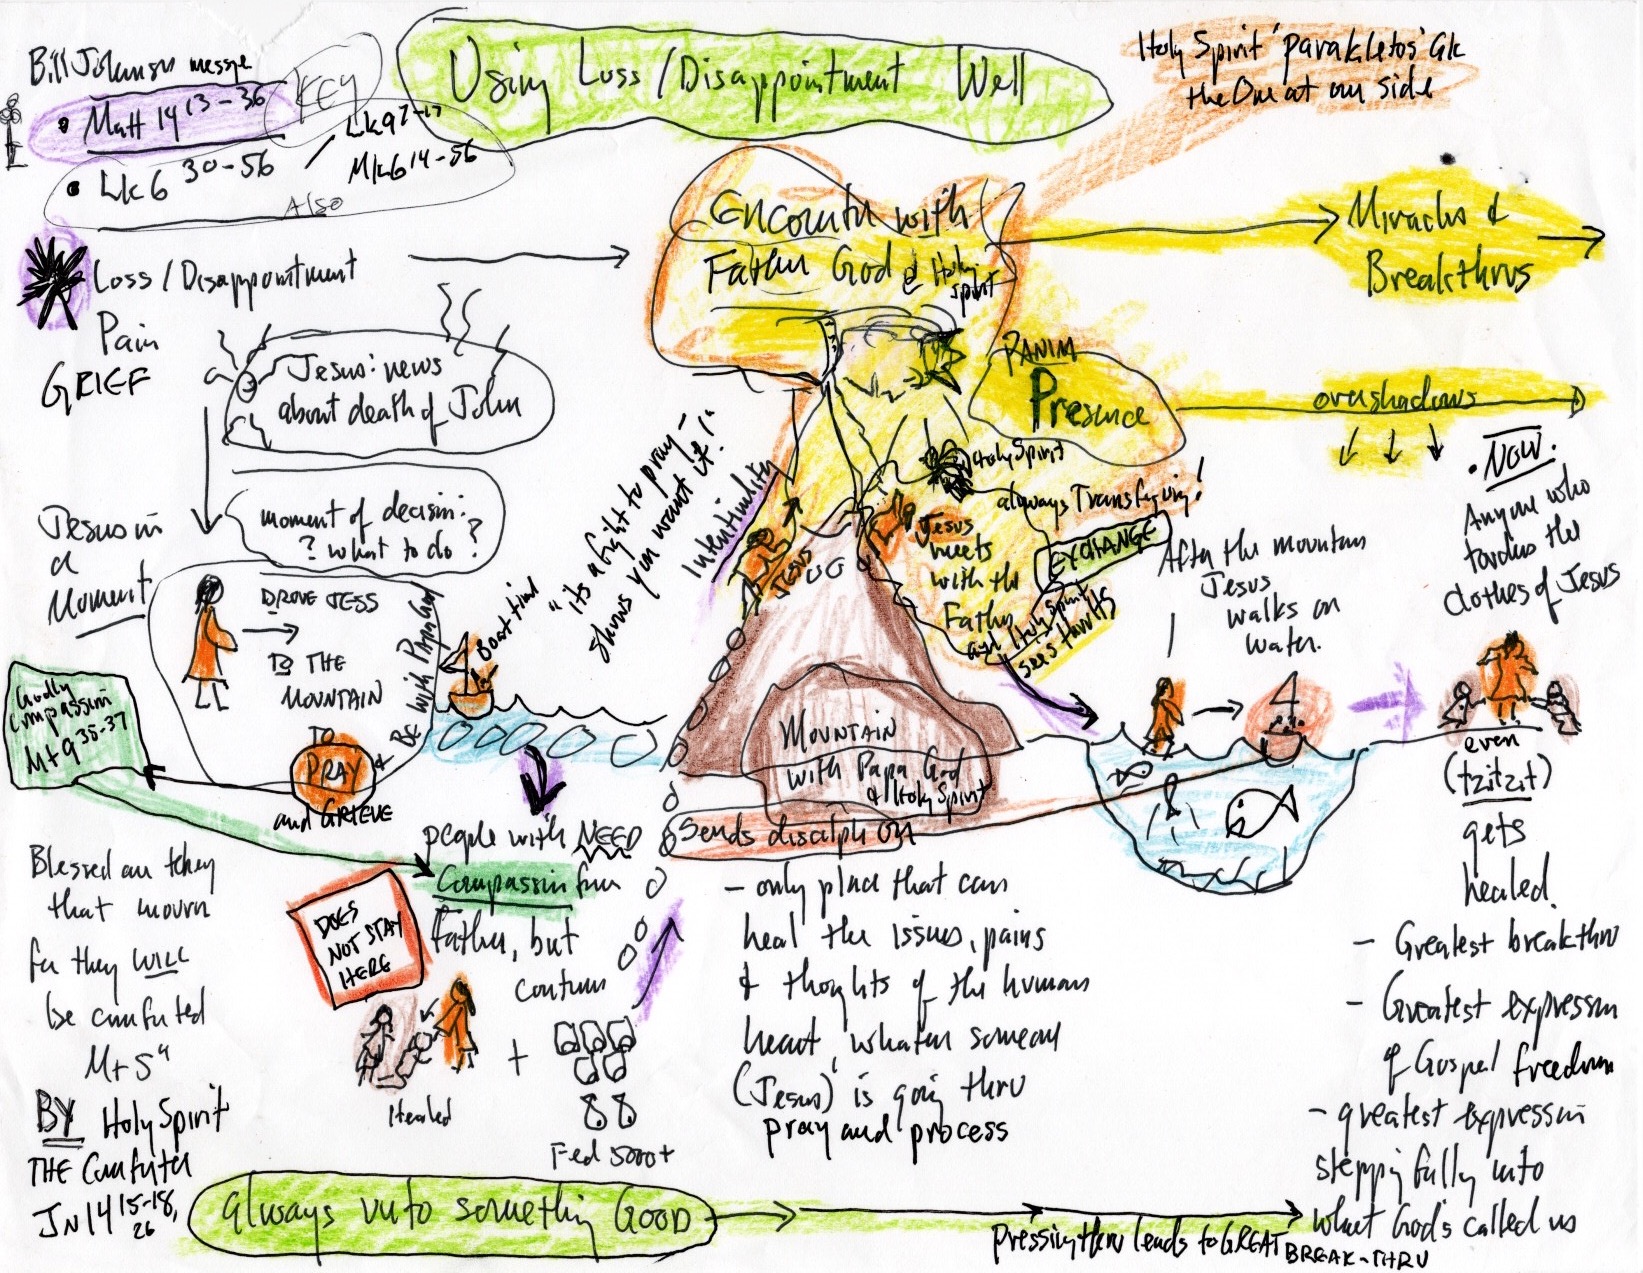 Bill Johnson messge
KEY
• Matt 14 13-36
Lk 9 7-17
/ Mk 6 14-56
• Lk 6 30-56
Also
Using Loss/Disappointment Well
Holy Spirit 'parakletos' Gk
the One at our side
Loss/Disappointment
Pain
GRIEF
Encounter with
Father God & Holy
Spirit
Miracles &
Breakthrus
Jesus: news
about death of John
PANIM
Presence
overshadows
moment of decision:
? what to do ?
Jesus in
a
Moment
DROVE JESS
TO THE
MOUNTAIN
TO
PRAY &
Be with Papa God
and GRIEVE
Boat time
"its a fight to pray -
shows you want it!"
Intentionality
JESUS
Holy Spirit
always Transfiguring!
Jesus
meets
with the
Father
and Holy Spirit
EXCHANGE
sees thru its
After the mountain
Jesus
walks on
water.
• NOW.
Anyone who
touches the
clothes of Jesus
even
(tzitzit)
gets
healed.
Godly
Compassion
Mt 9 35-37
MOUNTAIN
with Papa God
& Holy Spirit
Sends disciples on
people with NEED
Compassion from
Father, but
continues
DOES
NOT STAY
HERE
Healed
+
Fed 5000+
Blessed are they
that mourn
for they WILL
be comforted
Mt 5 4
BY Holy Spirit
THE Comforter
JN 14 15-18,
26
- only place that can
heal the issues, pains
& thoughts of the human
heart, whatever someone
(Jesus) is going thru
pray and process
- Greatest breakthru
- Greatest expression
of Gospel freedom
- greatest expression
stepping fully into
what God's called us
Always unto something GOOD
pressing thru leads to GREAT BREAK-THRU